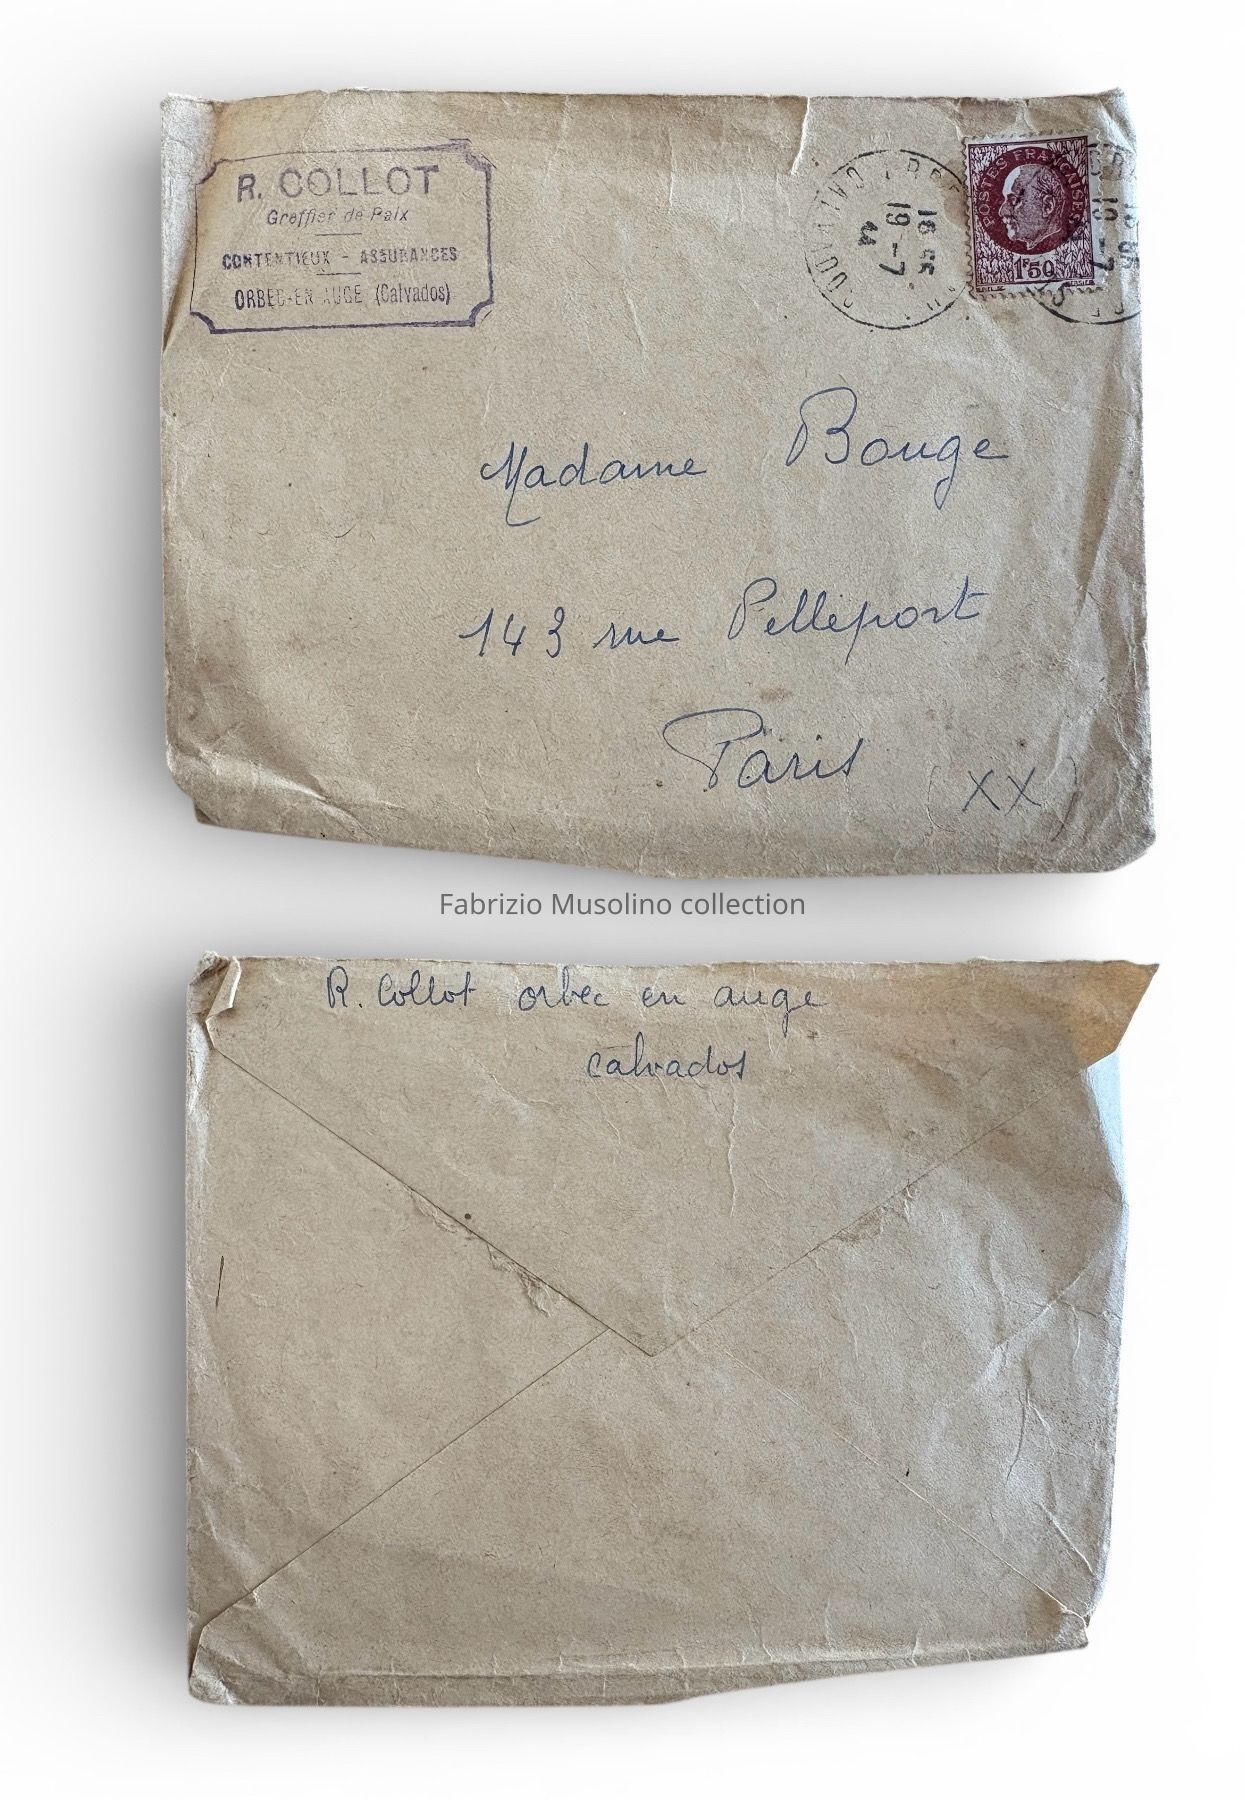 R. COLLOT
Greffier de Paix
CONTENTIEUX - ASSURANCES
ORBEC-EN AUGE (Calvados)
18 55
19 - 7
44
POSTES FRANÇAISES
1F50
Madame Bouge
143 rue Pelleport
Paris (XX)
Fabrizio Musolino collection
R. Collot orbec en auge
calvados